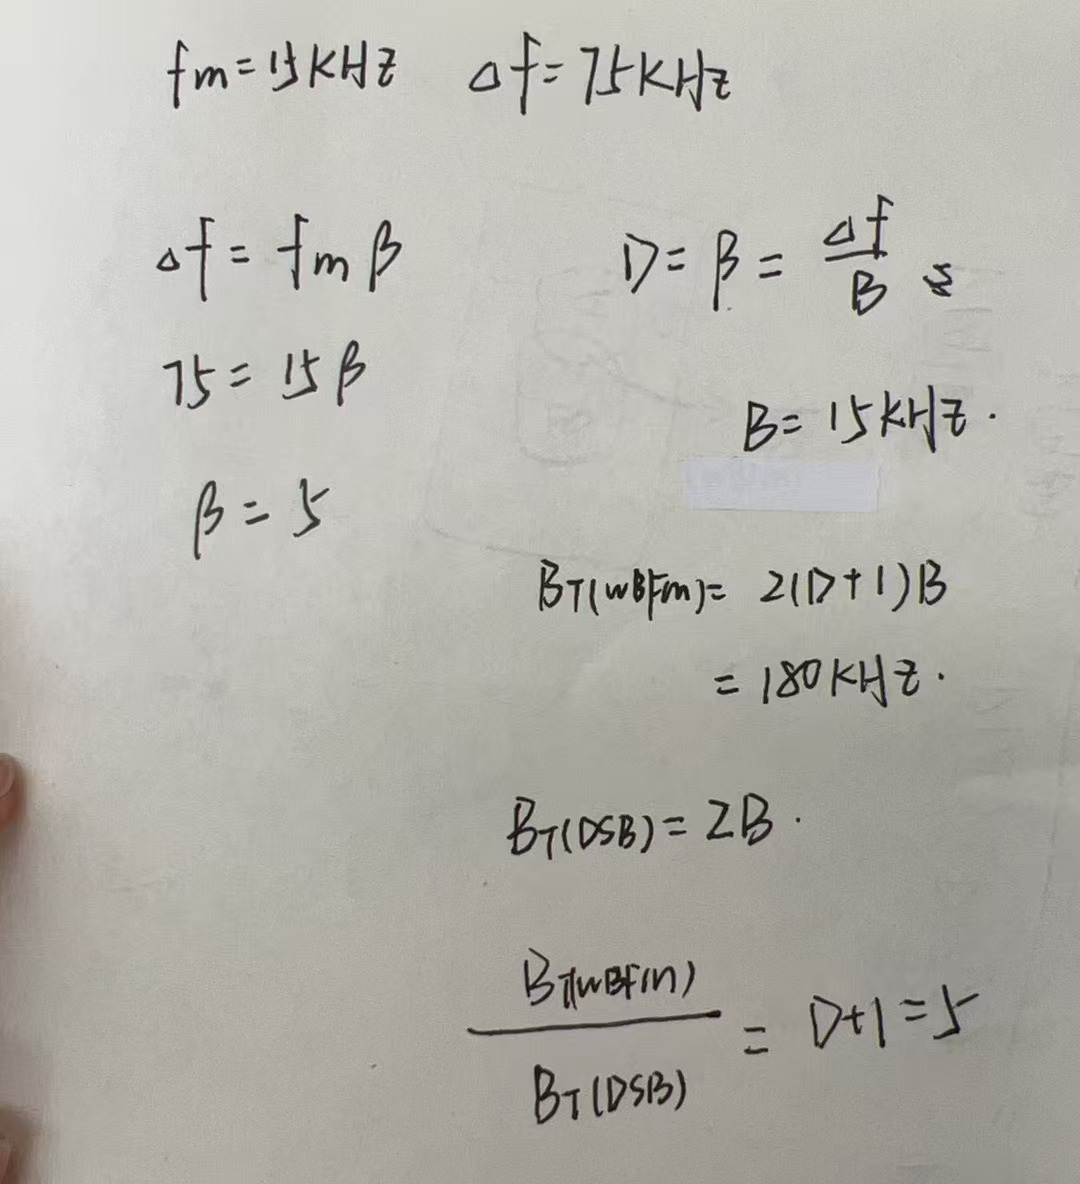 fm = 15KHz   Δf = 75KHz
Δf = fm β
D = β = Δf/B
75 = 15β
B = 15KHz.
β = 5
BT(WBFm) = 2(D+1)B
= 180KHz.
BT(DSB) = 2B.
BT(WBFm)/BT(DSB) = D+1 = 5